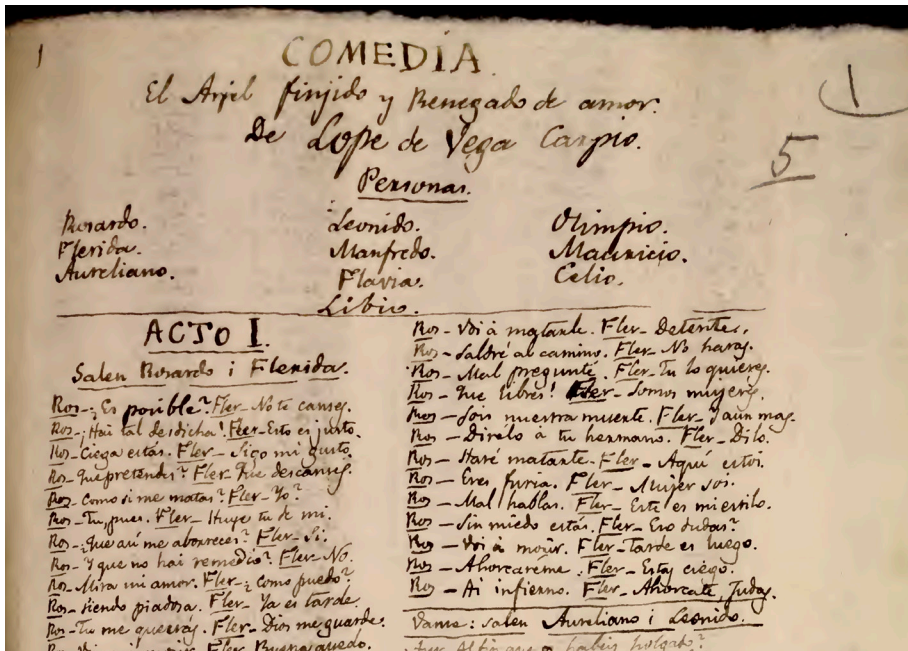 1
COMEDIA.
1
El Arjel finjido y Renegado de amor.
De Lope de Vega Carpio.
5
Personas.
Rosardo. Leonido. Olimpio.
Flerida. Manfredo. Mauricio.
Aureliano. Flavia. Celio.
Libio.
ACTO I.
Salen Rosardo i Flerida.
Ros-¿Es posible? Fler-No te canses.
Ros-¡Hai tal desdicha! Fler-Esto es justo.
Ros-Ciega estas. Fler-Sigo mi gusto.
Ros-Que pretendes? Fler-Que descanses.
Ros-Como si me matas? Fler-Yo?
Ros-Tu, pues. Fler-Huye tu de mi.
Ros-¿Que asi me aborreces? Fler-Si.
Ros-Y que no hai remedio? Fler-No.
Ros-Mira mi amor. Fler-¿Como puedo?
Ros-Siendo piadosa. Fler-Ya es tarde.
Ros-Tu me querrás. Fler-Dios me guarde.
Fler
Ros-Voi à matarte. Fler-Detente.
Ros-Saldré al camino. Fler-No haras.
Ros-Mal pregunte. Fler-Tu lo quieres.
Ros-Que libres! Fler-Somos mujeres.
Ros-Sois nuestra muerte. Fler-I aun mas.
Ros-Direlo à tu hermano. Fler-Dilo.
Ros-Haré matarte. Fler-Aquí estoi.
Ros-Eres furia. Fler-Mujer soi.
Ros-Mal hablas. Fler-Este es mi estilo.
Ros-Sin miedo estás. Fler-Eso dudas?
Ros-Voi à morir. Fler-Tarde es luego.
Ros-Ahorcaréme. Fler-Estas ciego.
Ros-Ai infierno. Fler-Ahorcate, Judas.
Vanse: salen Aureliano i Leonido.
habeis holgado?